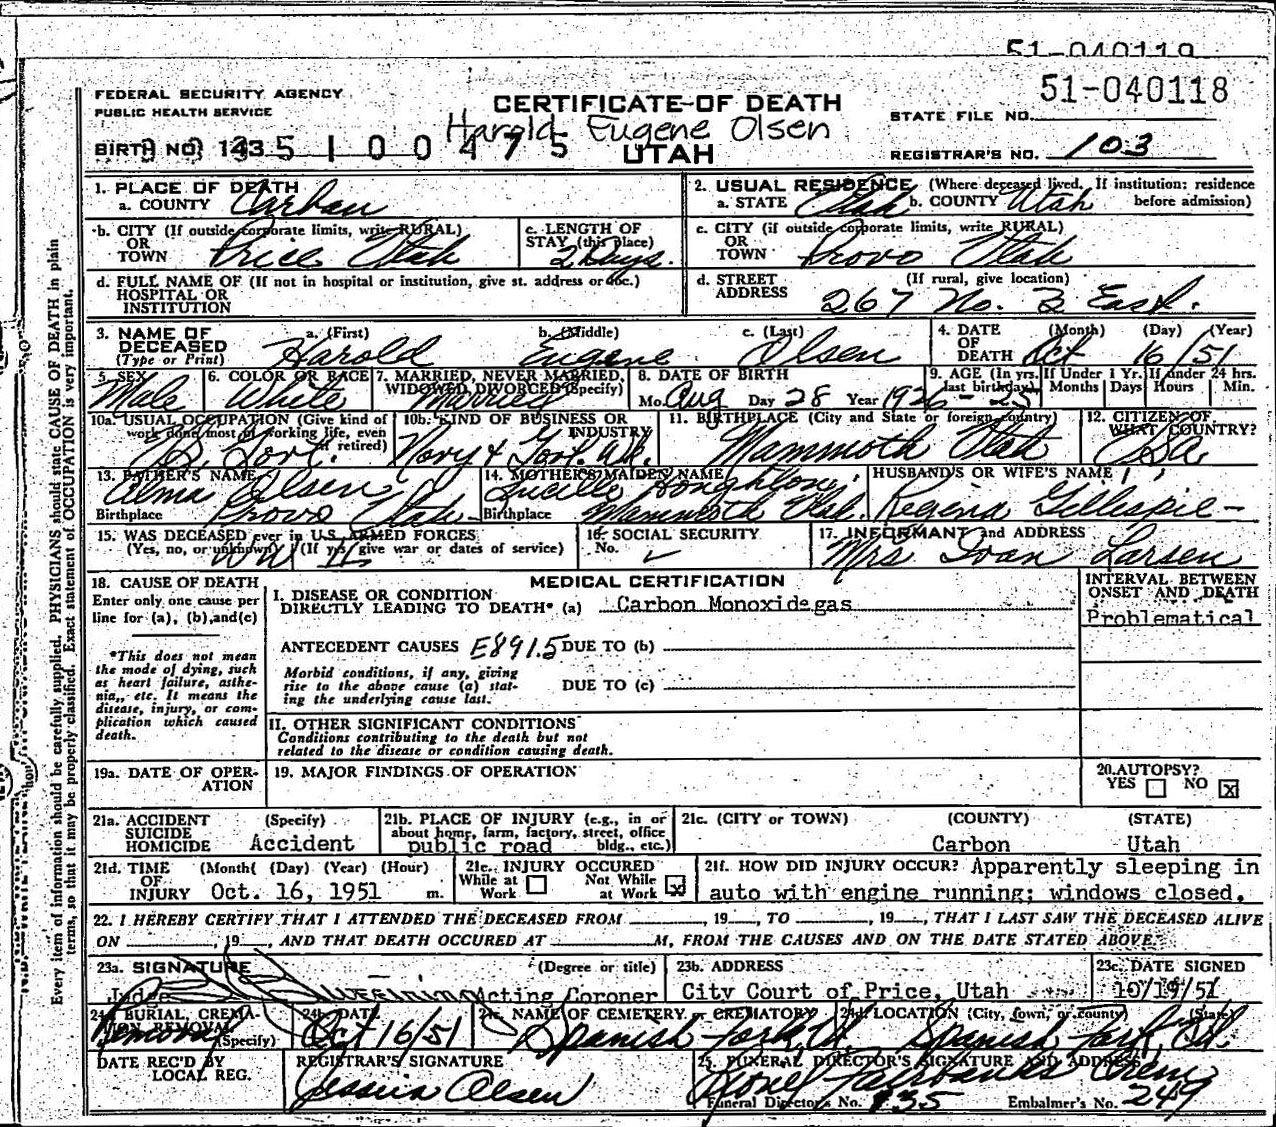 51-040119
51-040118
FEDERAL SECURITY AGENCY
PUBLIC HEALTH SERVICE
CERTIFICATE OF DEATH
STATE FILE NO.
Harold Eugene Olsen
BIRTH NO. 143 5 1 0 0 4 7 5
UTAH
REGISTRAR'S NO. 103
1. PLACE OF DEATH
a. COUNTY Carbon
2. USUAL RESIDENCE (Where deceased lived. If institution: residence before admission)
a. STATE Utah b. COUNTY Utah
b. CITY (If outside corporate limits, write RURAL) OR TOWN Price Utah
c. LENGTH OF STAY (this place) 2 Days.
c. CITY (if outside corporate limits, write RURAL) OR TOWN Provo Utah
d. FULL NAME OF (If not in hospital or institution, give st. address or loc.) HOSPITAL OR INSTITUTION
d. STREET ADDRESS (If rural, give location) 267 No. 2 East.
3. NAME OF DECEASED (Type or Print)
a. (First) Harold b. (Middle) Eugene c. (Last) Olsen
4. DATE OF DEATH (Month) (Day) (Year) Oct 16/51
5. SEX Male
6. COLOR OR RACE White
7. MARRIED, NEVER MARRIED, WIDOWED, DIVORCED (Specify) Married
8. DATE OF BIRTH Mo. Aug Day 28 Year 1926
9. AGE (In yrs. last birthday) 25 If Under 1 Yr. Months Days If under 24 hrs. Hours Min.
10a. USUAL OCCUPATION (Give kind of work done most of working life, even if retired)
10b. KIND OF BUSINESS OR INDUSTRY
11. BIRTHPLACE (City and State or foreign country) Mammoth Utah
12. CITIZEN OF WHAT COUNTRY? USA
13. FATHER'S NAME Alma Olsen
Birthplace Provo Utah
14. MOTHER'S MAIDEN NAME Lucille Houghton
Birthplace Mammoth Utah.
HUSBAND'S OR WIFE'S NAME Regena Gillespie
15. WAS DECEASED ever in U.S. ARMED FORCES
(Yes, no, or unknown) (If yes, give war or dates of service) WW II
16. SOCIAL SECURITY No.
17. INFORMANT and ADDRESS
Mrs Ivan Larsen
18. CAUSE OF DEATH
Enter only one cause per line for (a), (b), and (c)
MEDICAL CERTIFICATION
INTERVAL BETWEEN ONSET AND DEATH
Problematical
I. DISEASE OR CONDITION
DIRECTLY LEADING TO DEATH* (a) Carbon Monoxide gas
ANTECEDENT CAUSES E891.5 DUE TO (b)
Morbid conditions, if any, giving rise to the above cause (a) stating the underlying cause last.
DUE TO (c)
*This does not mean the mode of dying, such as heart failure, asthenia, etc. It means the disease, injury, or complication which caused death.
II. OTHER SIGNIFICANT CONDITIONS
Conditions contributing to the death but not related to the disease or condition causing death.
19a. DATE OF OPERATION
19. MAJOR FINDINGS OF OPERATION
20. AUTOPSY?
YES NO X
21a. ACCIDENT SUICIDE HOMICIDE (Specify) Accident
21b. PLACE OF INJURY (e.g., in or about home, farm, factory, street, office bldg., etc.) public road
21c. (CITY or TOWN) (COUNTY) (STATE)
Carbon Utah
21d. TIME OF INJURY (Month( (Day) (Year) (Hour) Oct. 16, 1951 m.
21e. INJURY OCCURED While at Work Not While at Work X
21f. HOW DID INJURY OCCUR? Apparently sleeping in
auto with engine running; windows closed.
22. I HEREBY CERTIFY THAT I ATTENDED THE DECEASED FROM , 19 , TO , 19 , THAT I LAST SAW THE DECEASED ALIVE
ON , 19 , AND THAT DEATH OCCURED AT M, FROM THE CAUSES AND ON THE DATE STATED ABOVE.
23a. SIGNATURE (Degree or title)
Judge Acting Coroner
23b. ADDRESS
City Court of Price, Utah
23c. DATE SIGNED
10/19/51
24a. BURIAL, CREMATION, REMOVAL (Specify) Removal
24b. DATE Oct 16/51
24c. NAME OF CEMETERY or CREMATORY Spanish Fork, Ut.
24d. LOCATION (City, town, or county) (State) Spanish Fork, Ut.
DATE REC'D BY LOCAL REG.
REGISTRAR'S SIGNATURE
Jessica Olsen
25. FUNERAL DIRECTOR'S SIGNATURE AND ADDRESS
Fairbanks
Funeral Director's No. 135 Embalmer's No. 249
Every item of information should be carefully supplied. PHYSICIANS should state CAUSE OF DEATH in plain
terms, so that it may be properly classified. Exact statement of OCCUPATION is very important.